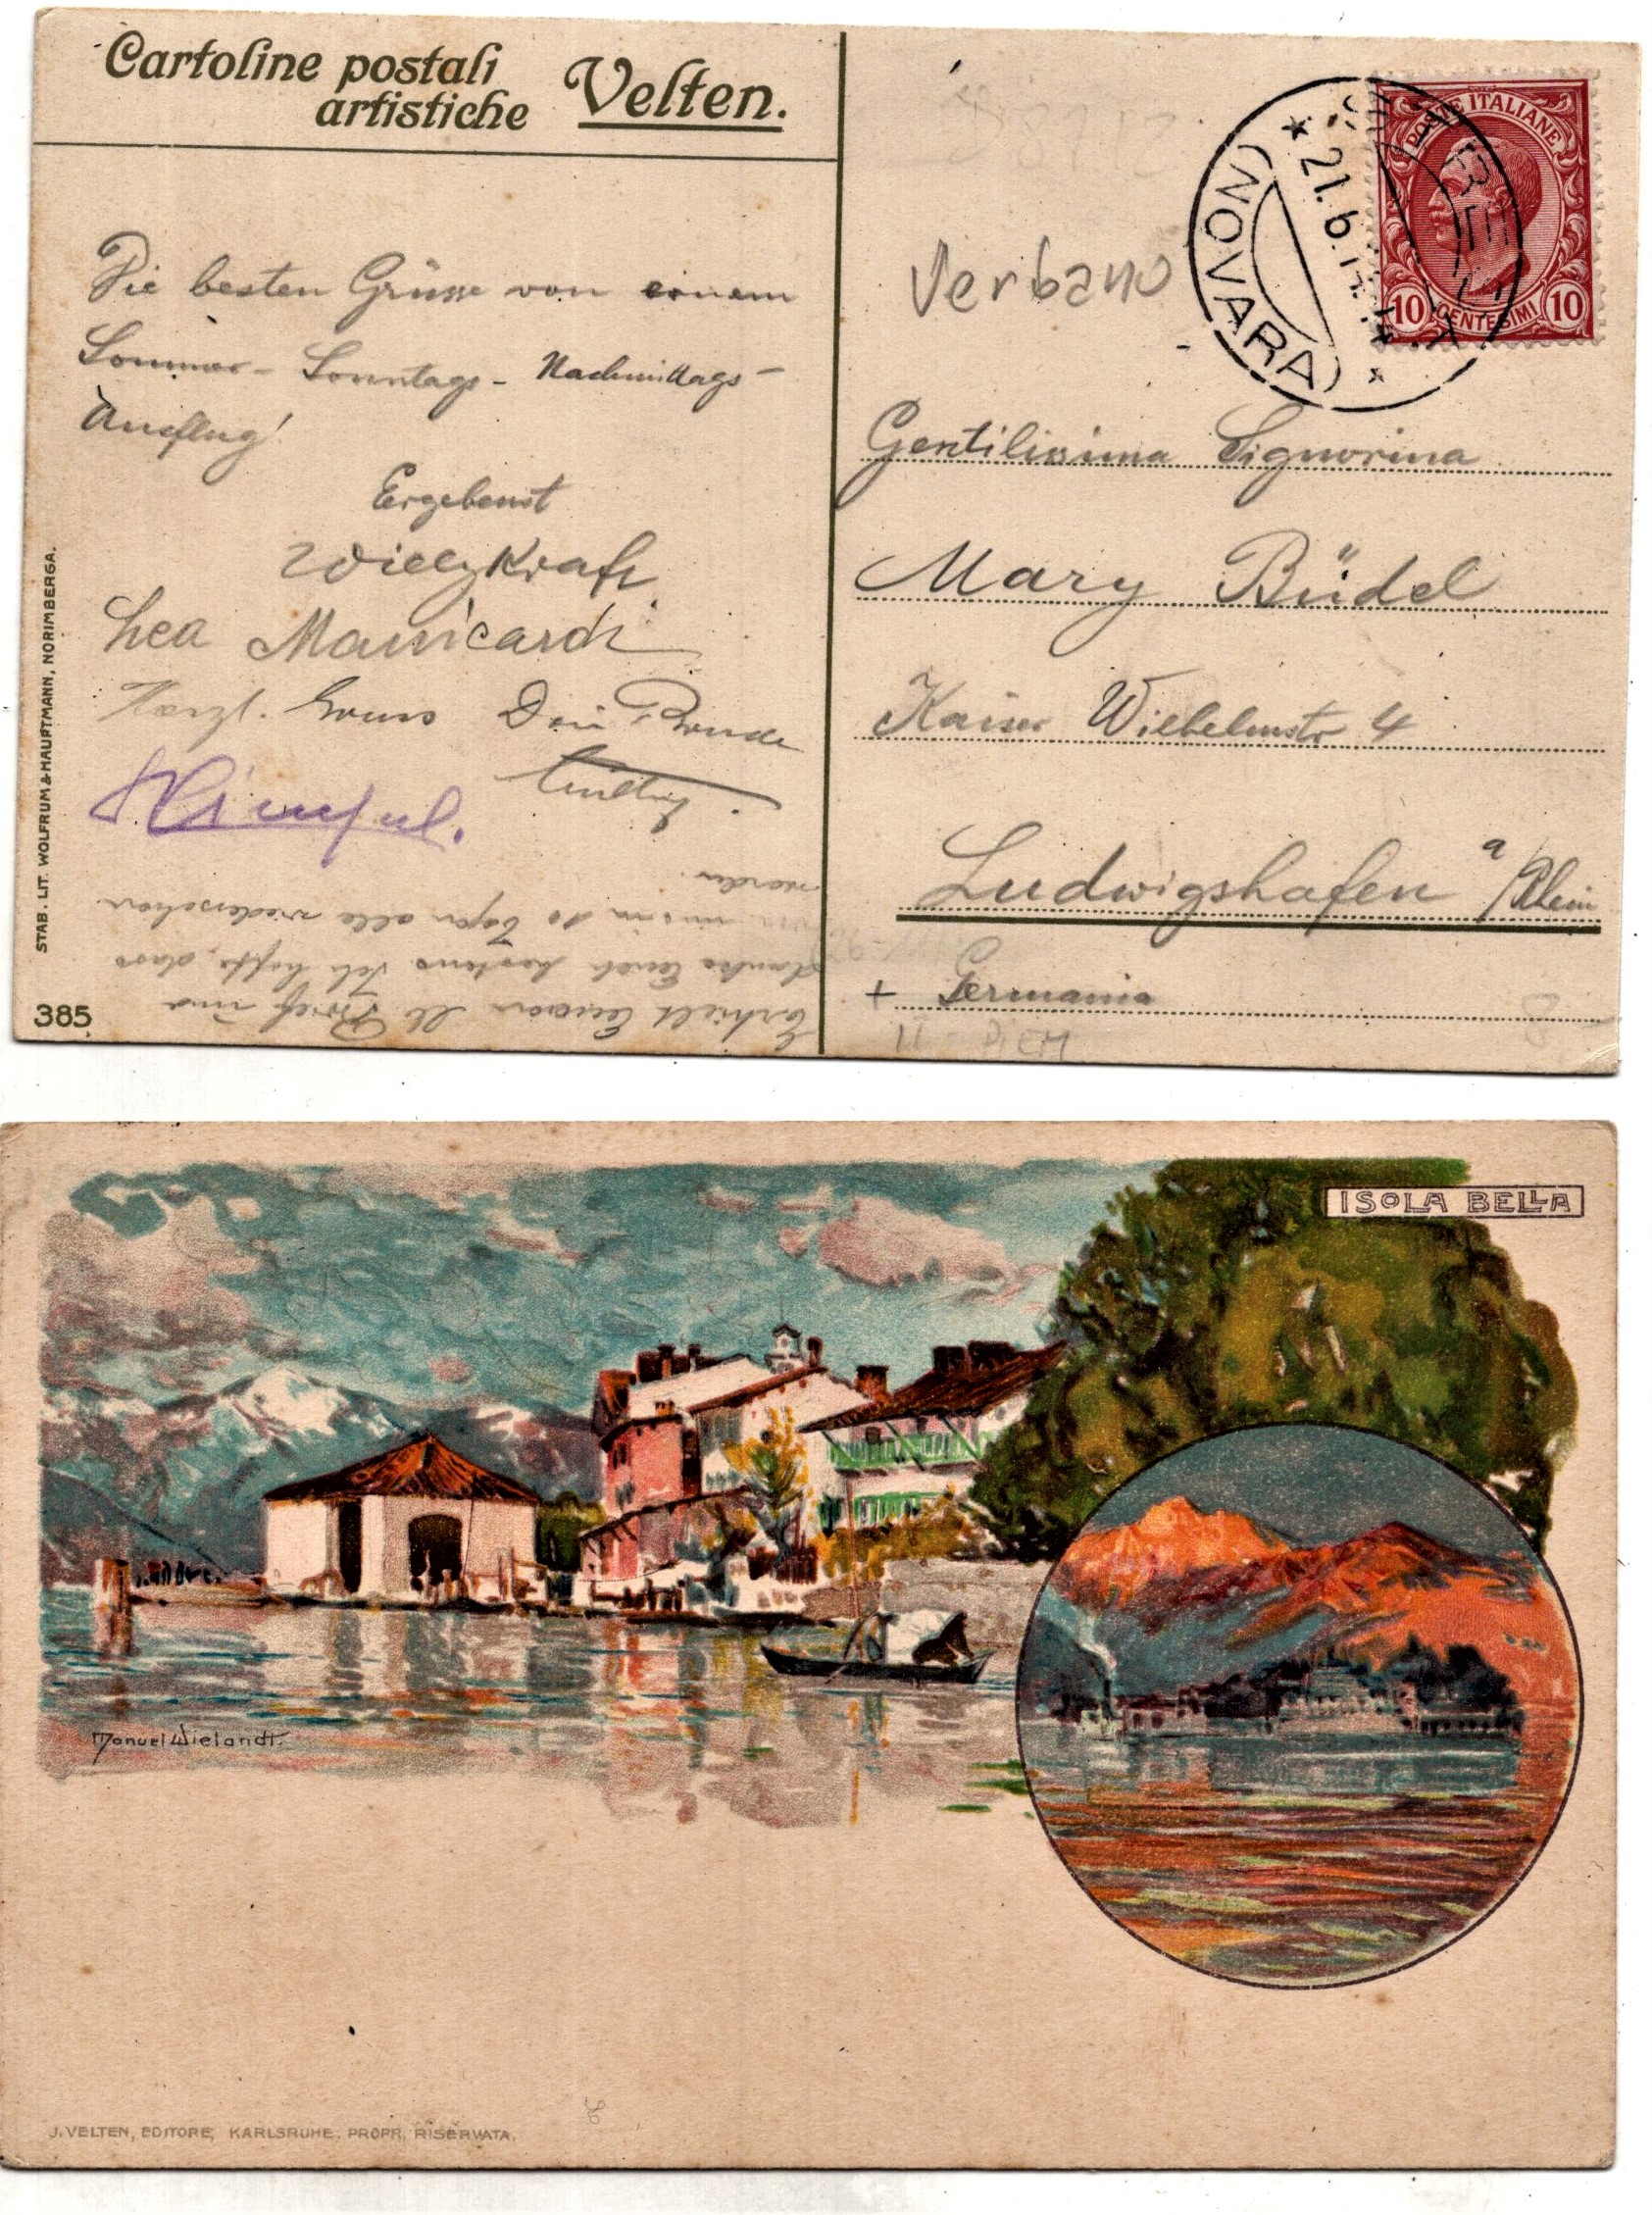 Cartoline postali
artistiche Velten.
Die besten Grüsse von einem
Sommer - Sonntags - Nachmittags -
Ausflug!
Ergebenst
Willy Kraft
Lea Mainicardi
Herzl. Gruss Dein Bruder
Erhielt Brief und
danke Euch bestens Ich hoffe, dass
wir uns in 10 Tagen alle wiedersehen
werden.
STAB. LIT. WOLFRUM & HAUPTMANN, NORIMBERGA.
385
Verbano
(NOVARA)
21.6.
POSTE ITALIANE
10 CENTESIMI 10
Gentilissima Signorina
Mary Büdel
Kaiser Wilhelmstr 4
Ludwigshafen a/Rhein
+ Germania
ISOLA BELLA
Manuel Wielandt.
J. VELTEN, EDITORE, KARLSRUHE. PROPR. RISERVATA.